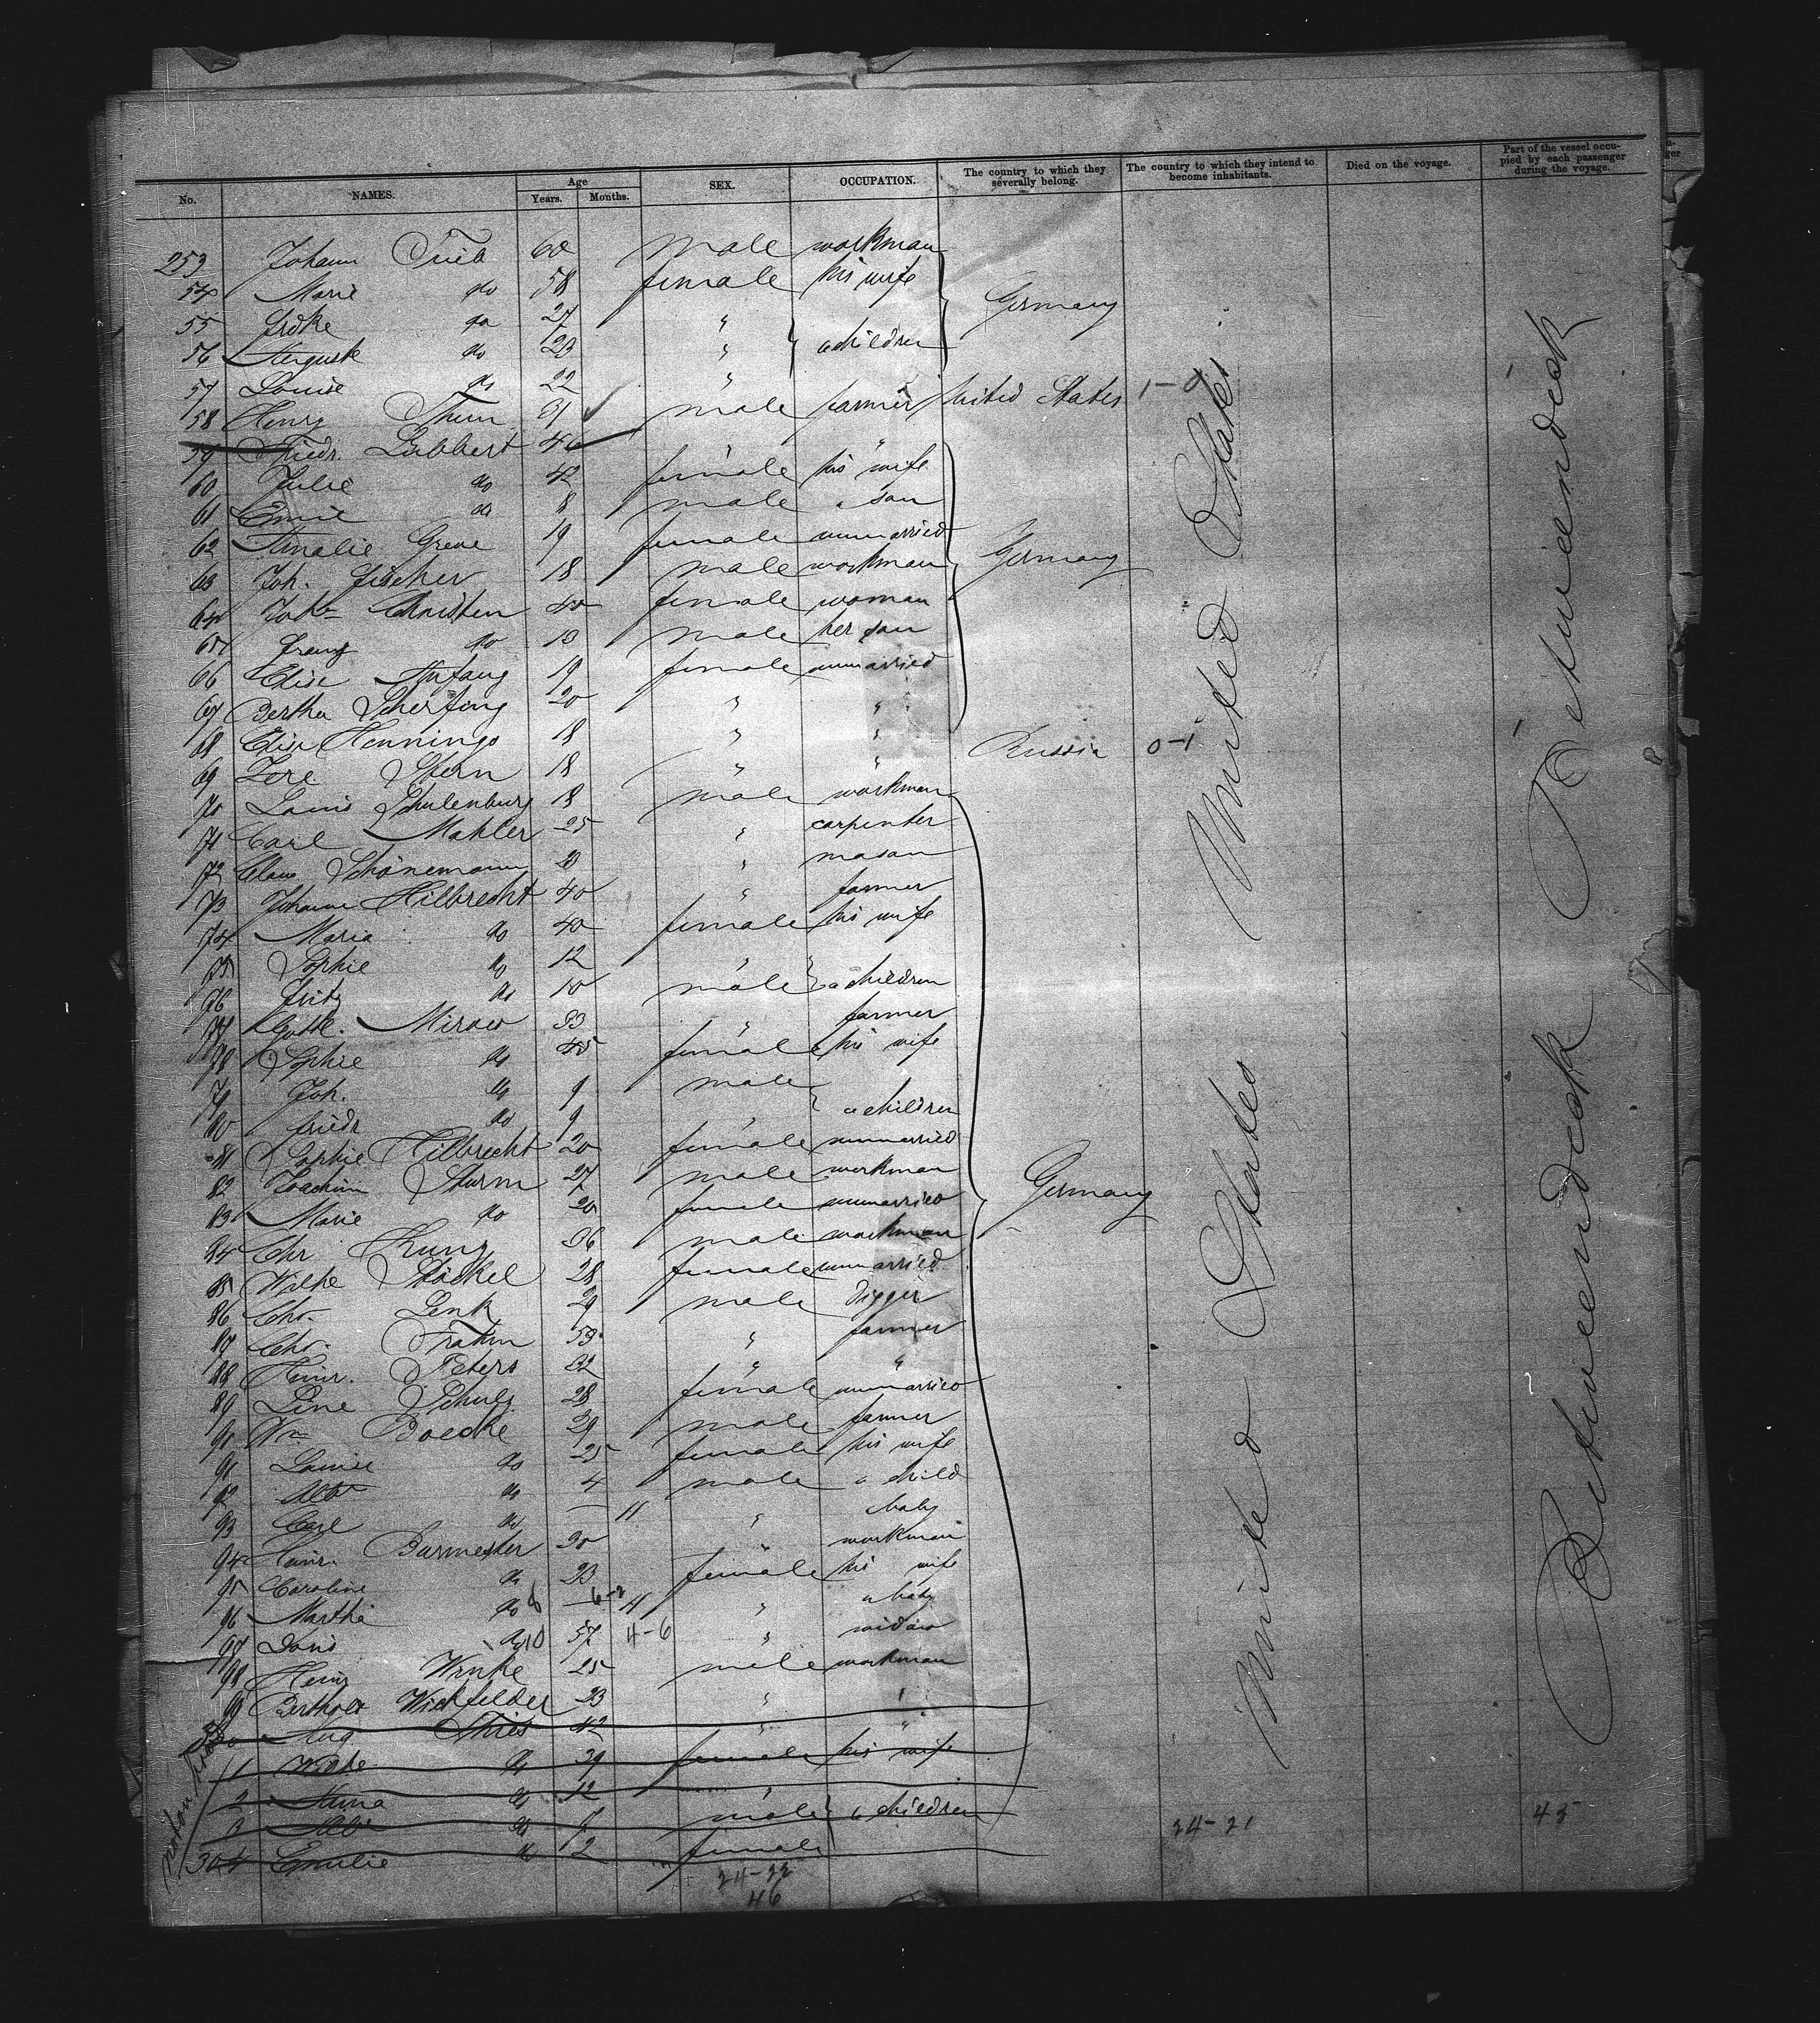 No. NAMES. Age Years. Months. SEX. OCCUPATION. The country to which they severally belong. The country to which they intend to become inhabitants. Died on the voyage. Part of the vessel occupied by each passenger during the voyage.
253 Johann 60 male workman
54 Marie do 58 female his wife Germany
55 do 27 "
56 Auguste do 23 " children
57 Louise do 22 "
58 Henry Thun male farmer United States 1-0
59 Friedr. Lübbert 46 " "
60 Julie do 42 female his wife
61 Emil do 8 male " son
62 Amalie Greve 19 female unmarried
63 Joh. Fischer 18 male workman Germany
64 Christen 40 female woman
65 Franz do male her son
66 Elise Anfang 19 female unmarried
67 Bertha 20 " "
68 Elise Hennings 18 " "
69 Stern 18 " " Russia 0-1
70 Louis Schulenburg 18 male workman
71 Carl Mahler 25 " carpenter
72 Claus Schönemann " mason
73 Johann Hilbrecht 40 " farmer
74 Maria do 40 female his wife
75 Sophie do 12 "
76 Fritz do 10 male children
77 Gottl. Mirow 33 " farmer
78 Sophie do 45 female his wife
79 Joh. do 9 male
80 Friedr do 9 " children
81 Sophie Hilbrecht 20 female unmarried
82 Joachim Sturm 27 male workman
83 Marie do 20 female unmarried Germany
84 Chr Kunz 36 male workman
85 Wilhe Stöckel 28 female unmarried
86 Chr. Lenk 29 male digger
87 Chr. Frahm 53 " farmer
88 Heinr. Peters 32 " "
89 Line Schulz 28 female unmarried
90 Wm Boedke 29 male farmer
91 Louise do 25 female his wife
92 Alb do 4 male a child
93 Carl do 11 " baby
94 Heinr. Burmester 30 " workman
95 Caroline do 23 female his wife
96 Martha do 11 " a baby
97 do 57 4-6 " widow
98 Heinr Winke 25 male workman
99 Berthold Wiekfelder 23 " "
300 Aug Thies 42 " "
1 Wilhe do 39 female his wife
2 Anna do 12 "
3 Alb do male children
304 Emilie do 2 female
United States
United States
Betweendeck
Betweendeck
24-22
46
24-21
45